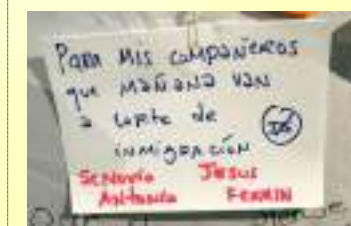 Para mis compañeros
que mañana van
a corte de
inmigración
Senovio Jesus
Antonio Fermin